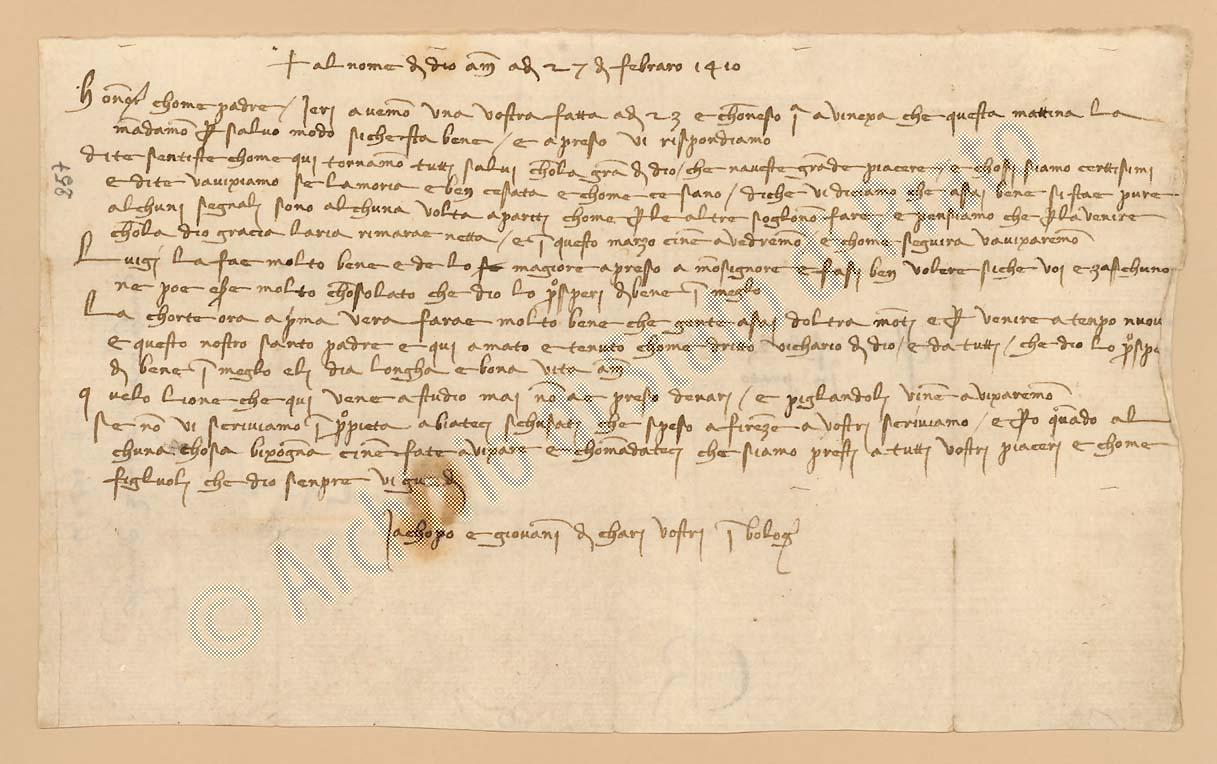 + al nome di dio am̄ adi 27 di febraro 1410
honor chome padre / Ieri avemo una vostra fatta adi 23 e choneso i a vinexa che questa mattina la
mādamo p salvo modo siche sta bene / e apreso vi rispondiamo
dite sentiste chome qui tornamo tutti salvi chola grā di dio / che naveste grāde piacere / e chosi siamo certtisimi
e dite vavixiamo se la moria e ben cesata e chome ce sano / diche vi diciamo che asai bene si stae pure
alchuni segnali sono alchuna volta apariti chome p le altre soglono fare e pensiamo che p lavenire
chōla dio gracia laria rimarae netta / e ī questo marzo cinē avedremo e chome seguira vavixaremo
Luigi la fae molto bene e de lo magiore apreso a mōsignore e fasi ben volere siche voi e zaschuno
ne poe ese molto chōsolato che dio lo pꝰsperi di bene ī meglo
La chorte ora a pima vera farae molto bene che gente asai doltra moti e p venire a tenpo nuou
e questo nostro santo padre e qui amato e tenuto chome dritto vichario di dio / e da tutti / che dio lo pꝰspe
di bene ī meglo eli dia longha e bona vita am̄
quelo lione che qui vene a studio mai nō ae preso denari / e piglandoli vinē avixaremo
Se nō vi scriviamo ī pꝰpieta abiateci schusati che speso a firenze a vostri scriviamo / e po quādo al
chuna chosa bixogna cinē fate avixare e chomādateci che siamo presti a tutti vostri piaceri e chome
figluoli che dio senpre vi
Jachopo e giovani di chari vostri ī bolog
267
© Archivio di Stato di Prato